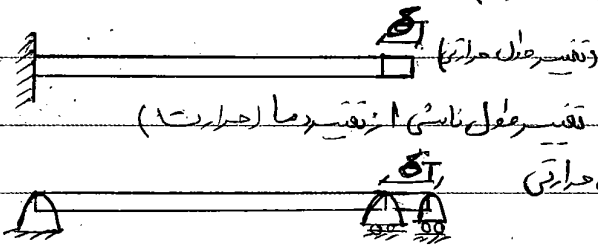 δT
(تغییر طول حرارتی)
تغییر طول ناشی از تغییر دما (حرارت)
δT
حرارتی